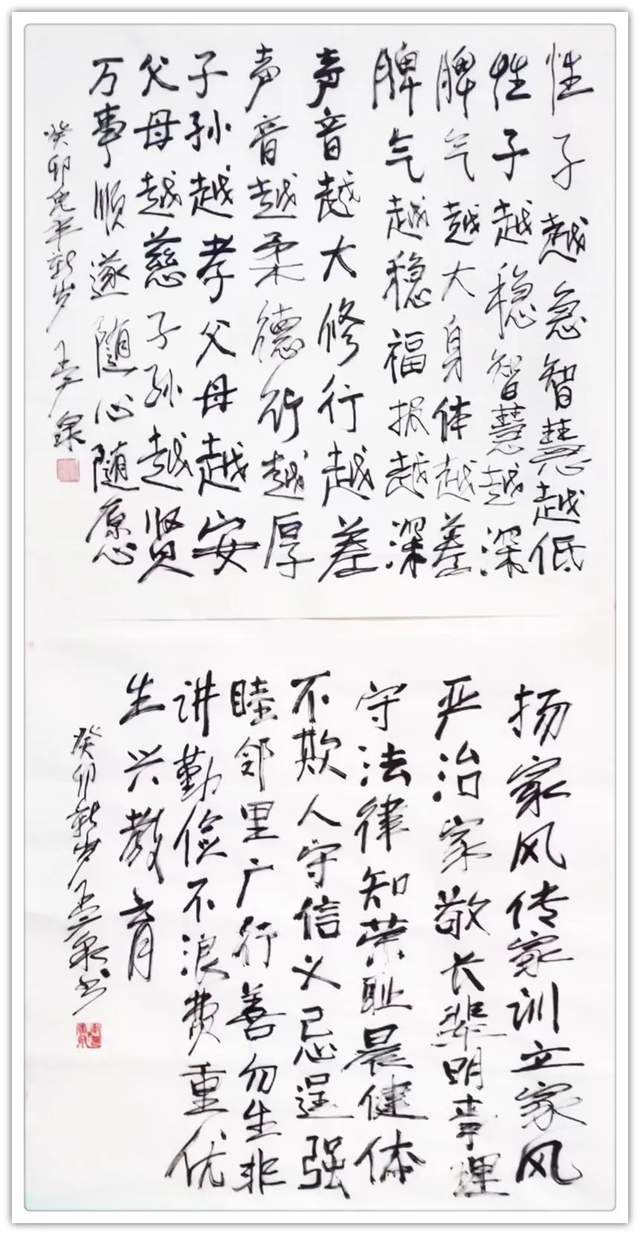 性子越急智慧越低
性子越稳智慧越深
脾气越大身体越差
脾气越稳福报越深
声音越大修行越差
声音越柔德行越厚
子孙越孝父母越安
父母越慈子孙越贤
万事顺遂随心随愿
癸卯兔年新岁 泉
扬家风传家训立家风
严治家敬长辈明事理
守法律知荣耻晨健体
不欺人守信义忌逞强
睦邻里广行善勿生非
讲勤俭不浪费重优
生兴教育
癸卯新岁 泉书